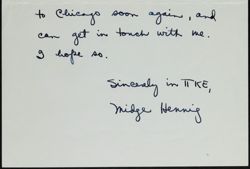 to Chicago soon again, and
can get in touch with me.
I hope so.
Sincerely in π KE,
Midge Hennig